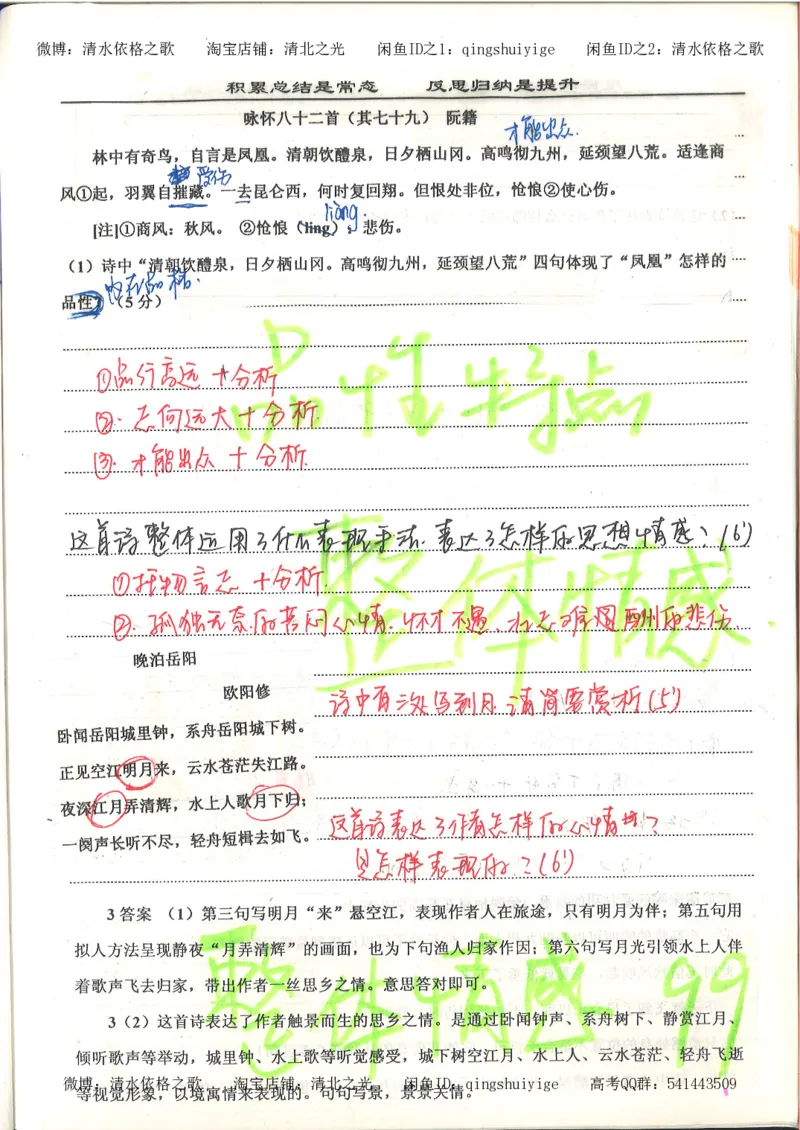 微博：清水依格之歌 淘宝店铺：清北之光 闲鱼ID之1：qingshuiyige 闲鱼ID之2：清水依格之歌
积累总结是常态 反思归纳是提升
咏怀八十二首（其七十九） 阮籍
才能出众.
林中有奇鸟，自言是凤凰。清朝饮醴泉，日夕栖山冈。高鸣彻九州，延颈望八荒。适逢商
受伤
风①起，羽翼自摧藏。一去昆仑西，何时复回翔。但恨处非位，怆悢②使心伤。
liàng.
[注]①商风：秋风。 ②怆悢（ling），悲伤。
（1）诗中“清朝饮醴泉，日夕栖山冈。高鸣彻九州，延颈望八荒”四句体现了“凤凰”怎样的
内在品格.
品性？（5分）
品性特点
①品行高远 + 分析
②. 志向远大 + 分析.
③. 才能出众 + 分析.
这首诗整体运用了什么表现手法，表达了怎样的思想情感？（6'）
整体情感
①托物言志 + 分析.
②. 孤独无奈的苦闷心情、怀才不遇、壮志难酬的悲伤.
晚泊岳阳
欧阳修
诗中有三次写到月，请简要赏析（5'）
卧闻岳阳城里钟，系舟岳阳城下树。
正见空江明月来，云水苍茫失江路。
夜深江月弄清辉，水上人歌月下归；
一阕声长听不尽，轻舟短楫去如飞。
这首诗表达了作者怎样的心情？
是怎样表现的？（6'）
3答案 （1）第三句写明月“来”悬空江，表现作者人在旅途，只有明月为伴；第五句用
拟人方法呈现静夜“月弄清辉”的画面，也为下句渔人归家作因；第六句写月光引领水上人伴
着歌声飞去归家，带出作者一丝思乡之情。意思答对即可。
整体情感 99
3（2）这首诗表达了作者触景而生的思乡之情。是通过卧闻钟声、系舟树下、静赏江月、
倾听歌声等举动，城里钟、水上歌等听觉感受，城下树空江月、水上人、云水苍茫、轻舟飞逝
微博：清水依格之歌 淘宝店铺：清北之光 闲鱼ID：qingshuiyige 高考QQ群：541443509
等视觉形象，以境寓情来表现的。句句写景，景景关情。